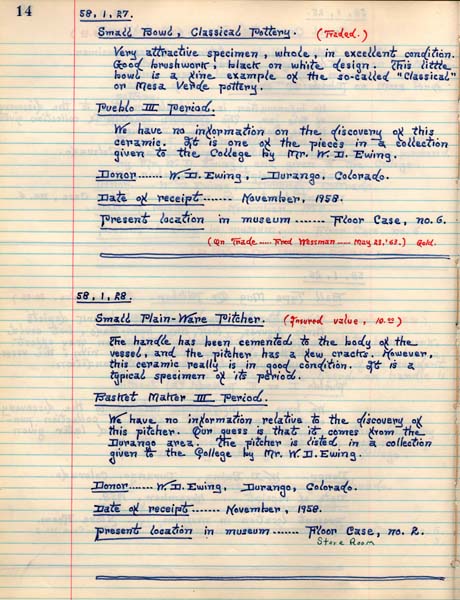 14
58, 1, 27.
Small Bowl, Classical Pottery. (Traded.)
Very attractive specimen, whole, in excellent condition.
Good brushwork; black on white design. This little
bowl is a fine example of the so-called "Classical"
or Mesa Verde pottery.
Pueblo III Period.
We have no information on the discovery of this
ceramic. It is one of the pieces in a collection
given to the College by Mr. W. D. Ewing.
Donor...... W. D. Ewing, Durango, Colorado.
Date of receipt....... November, 1958.
Present location in museum ....... Floor Case, no. 6.
(On Trade ..... Fred Wessman ..... May 23, '63.) Gold.
58, 1, 28.
Small Plain-Ware Pitcher. (Insured value, 10.00)
The handle has been cemented to the body of the
vessel, and the pitcher has a few cracks. However,
this ceramic really is in good condition. It is a
typical specimen of its period.
Basket Maker III Period.
We have no information relative to the discovery of
this pitcher. Our guess is that it comes from the
Durango area. The pitcher is listed in a collection
given to the College by Mr. W. D. Ewing.
Donor....... W. D. Ewing, Durango, Colorado.
Date of receipt....... November, 1958.
Present location in museum ....... Floor Case, no. 2.
Store Room